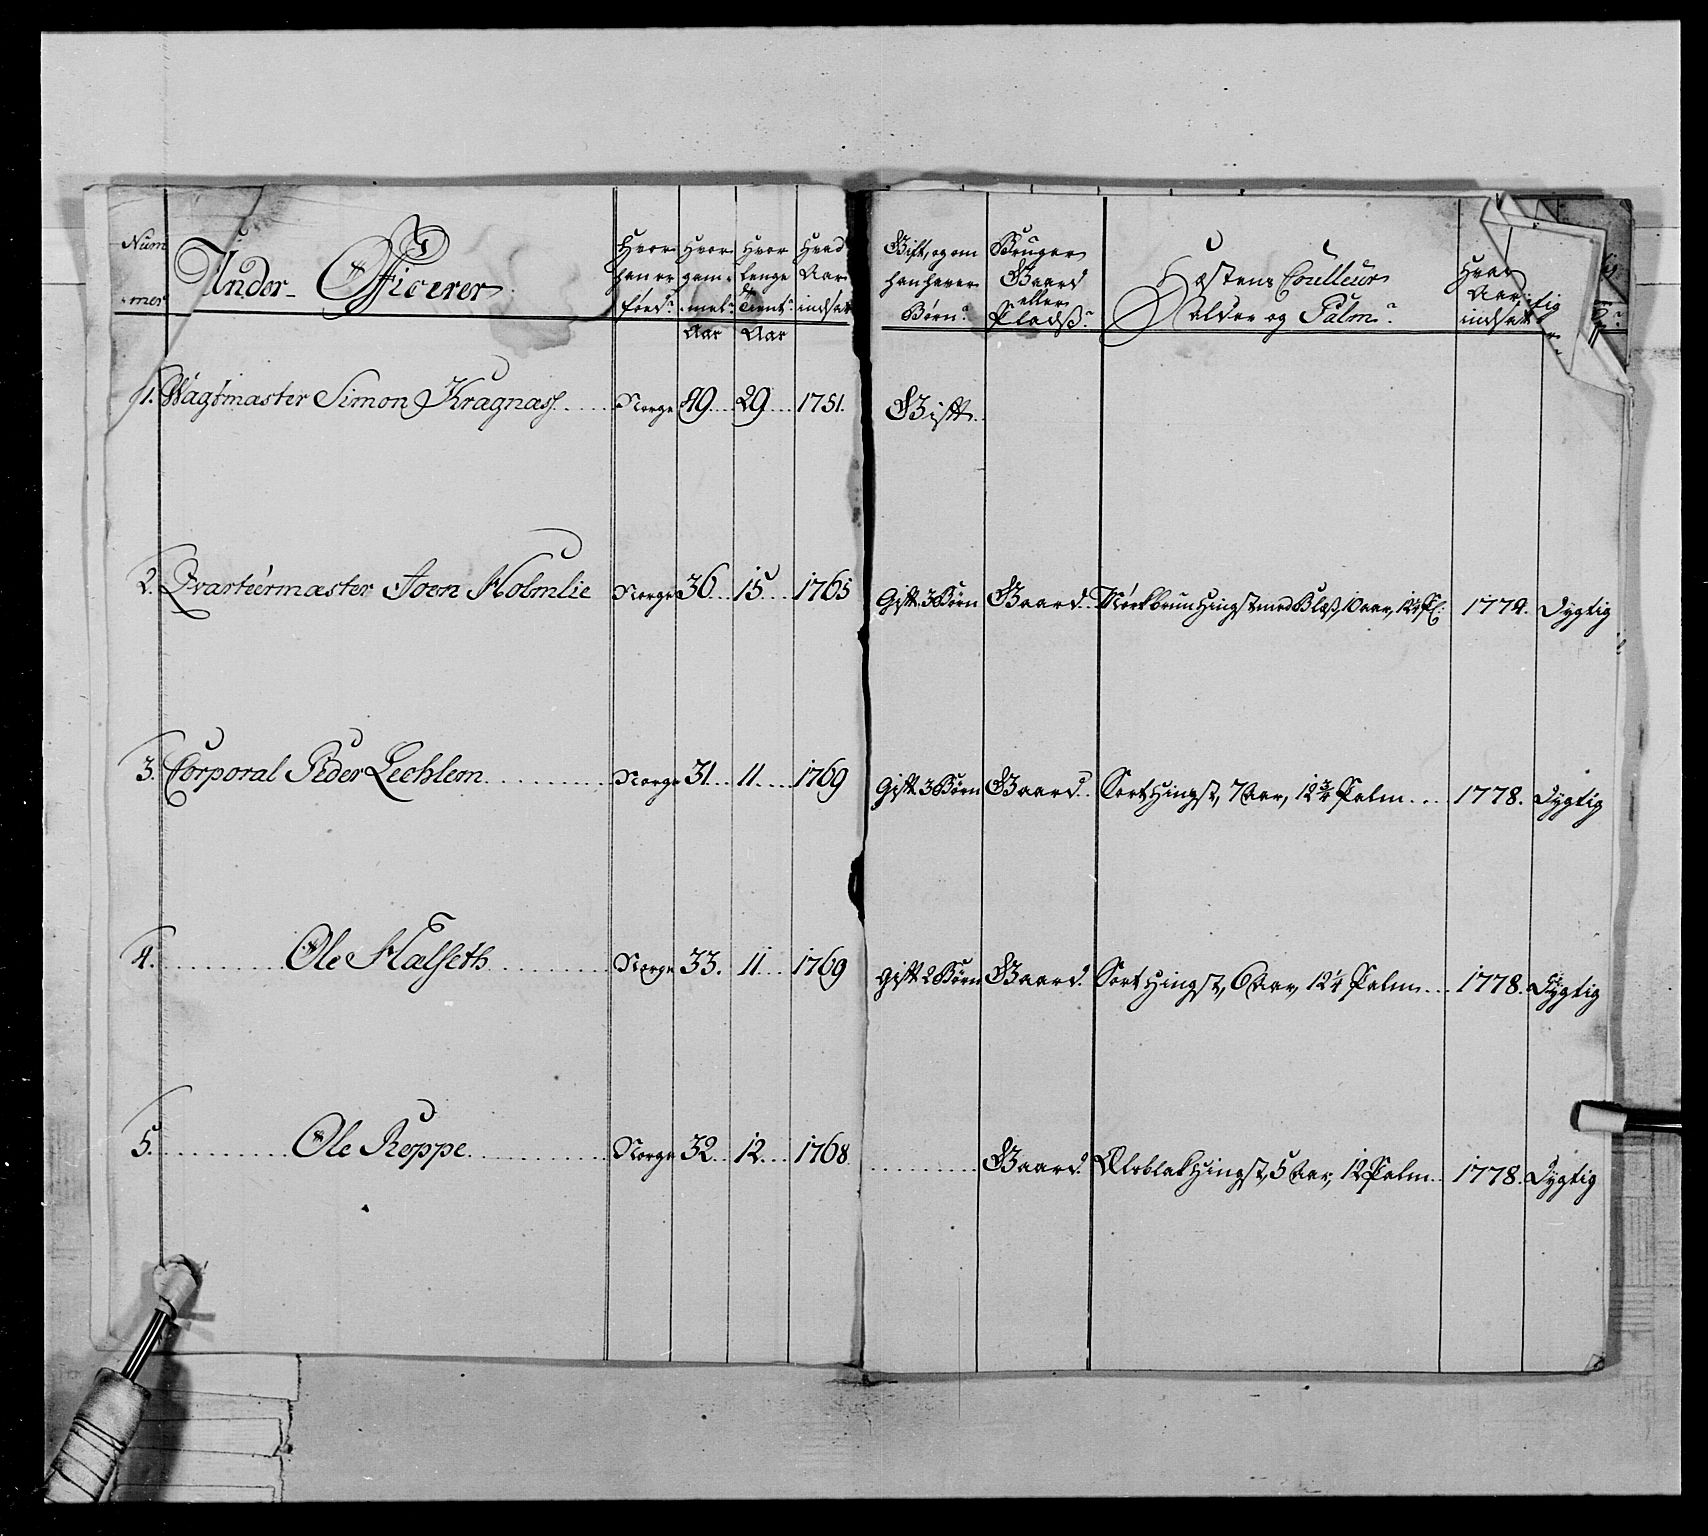 Num-mer
Under-Officerer
Hvor han er fød?
Hvor gam-mel?
Hvor lenge Tient?
Hvad Aar indsat
Gift, og om han haver Børn?
Bruger Gaard eller Pladß?
Hæstens Coulleur Alder og Palm?
Hvad Aar indsat
Aar Aar
1. Wagtmæster Simon Kragnæss Norge 49 29 1751. Gift
2. Qvarteermæster Joen Holmlie Norge 36 15 1765 Gift 3 Børn Gaard Mørkbrun Hingst med Blæß, 10 aar, 12½ Pl: 1774. Dygtig
3. Corporal Peder Lechlem Norge 31 11 1769 Gift 3 Børn Gaard Sort Hingst, 7 Aar, 12¾ Palm 1778. Dygtig
4. Ole Halseth Norge 33. 11 1769 Gift 2 Børn Gaard Sort Hingst, 6 Aar, 12¼ Palm 1778. Dygtig
5. Ole Roppe Norge 32 12 1768 Gaard Ulvblak Hingst, 5 Aar, 12 Palm 1778. Dygtig